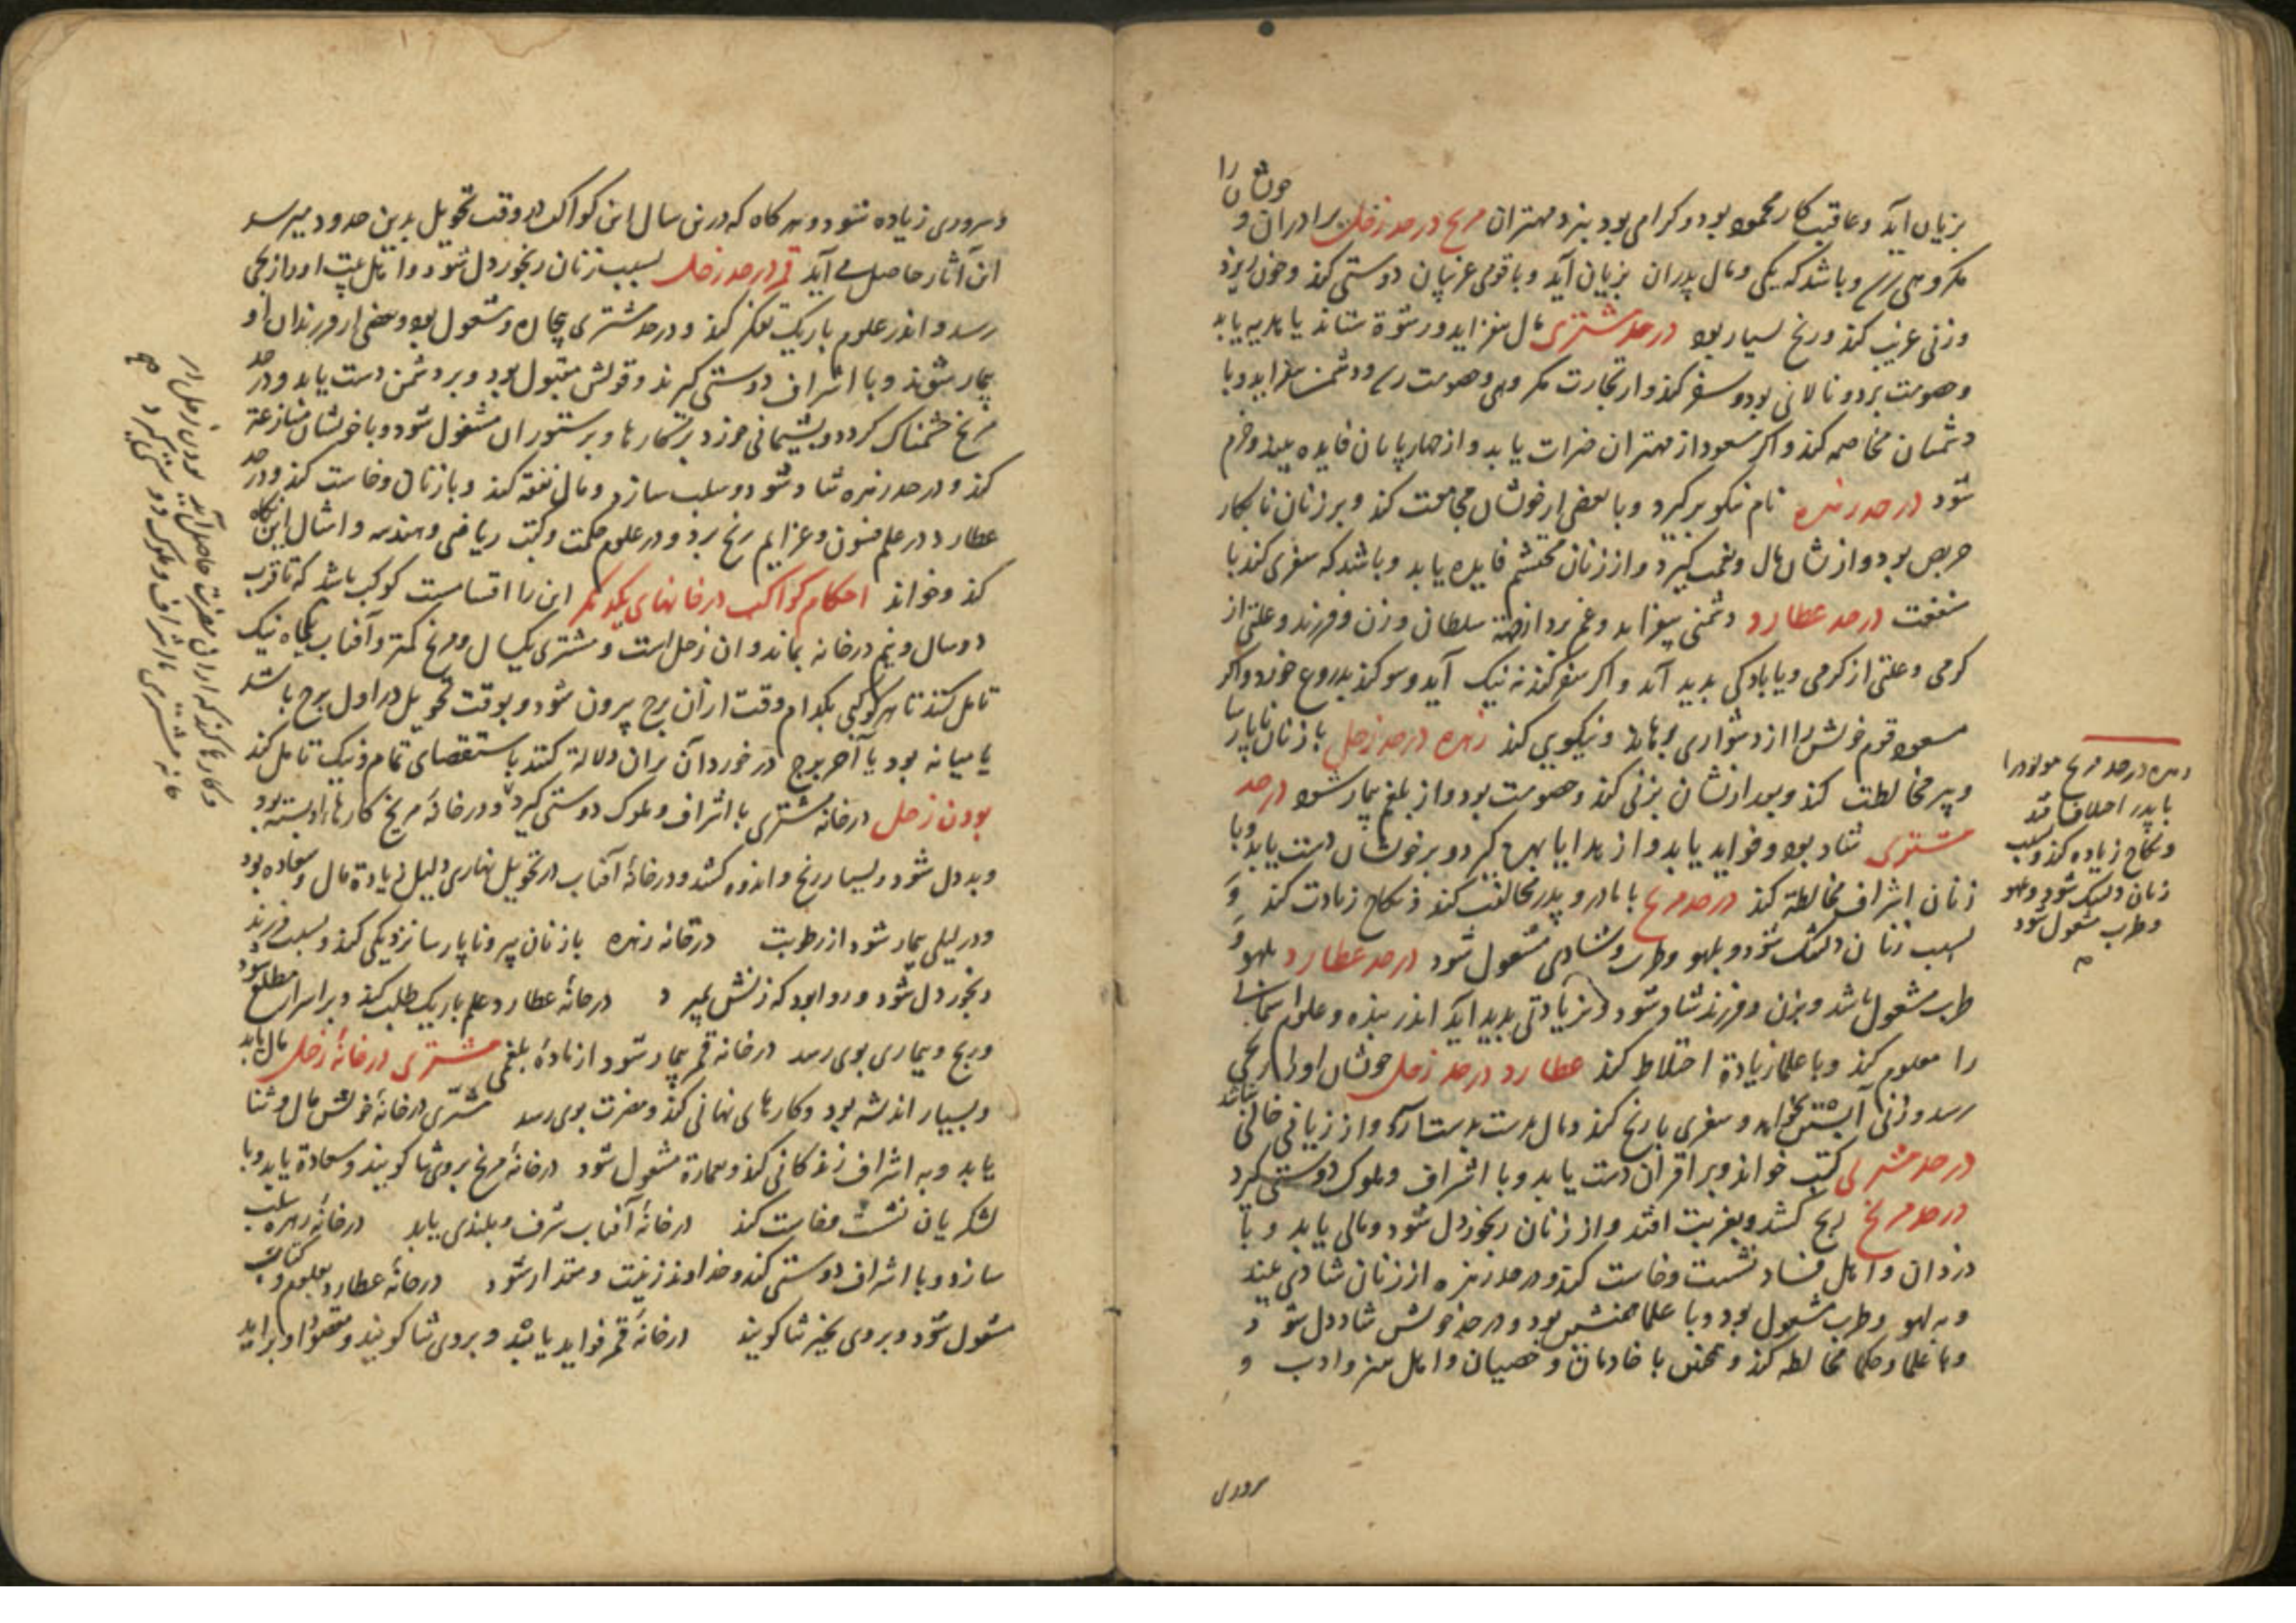 خوشان را
بزیان آید و عاقبت کار محمود بود و کرامی بود بنزد مهتران مریخ در حد زحل برادران و
مکروهی رسد و باشد که یکی و مال پدران بزیان آید و با قومی غریبان دوستی کند و خون ریزد
وزنی غریب کند و رنج بسیار بود در حد مشتری مال بیفزاید و رشوة ستاند یا هدیه یابد
وخصومت برد و نالانی بود و سفر کند و از تجارت مکروهی و خصومت رسد و دشمنی بیفزاید و با
دشمنان مخاصمه کند و اکر مسعود از مهتران خیرات یابد و از چهار پایان فایده بیند و خرم
شود در حد زهره نام نیکو برکیرد و با بعضی از خوشان مجامعت کند و بر زنان نابکار
حریص بود و از نشان مال و نعمت کیرد و از زنان محتشم فایده یابد و باشد که سفری کند با
منفعت در حد عطارد دشمنی بیفزاید و غم برد از جهة سلطان و زن و فرزند و علتی از
کرمی و علتی از کرمی و یا بادکی پدید آید و اکر سفر کند نه نیک آید و سوکند بدروغ خورد و اکر
مسعود قوم خوش را از دشواری برهاند و نیکویی کند زهره در حد زحل با زنان ناپارسا
و پیر مخالطت کند و بعد ازنشان بزنی کند و خصومت بود و از بلغم بیمار شود در حد
مشتری شاد بود و فواید یابد و از هدایا بهره کیرد و بر خوشان دست یابد و با
زنان اشراف مخالطة کند در حد مریخ با مادر و پدر مخالفت کند و نکاح زیادت کند و
بسبب زنان دلتنک شود و بلهو و طرب و شادی مشغول شود در حد عطارد بلهو و
طرب مشغول باشد و بزن و فرزند شاد شود و زیادتی پدید آید اندر بنده و علوم
را معلوم کند و با علما زیادة اختلاط کند عطارد در حد زحل خوشان او را رنجی
رسد و زنی آبستن بخواهد و سفری با رنج کند و مال بدست آرد و از زیانی خالی نباشد
در حد مشتری کتب خواند و بر اقران دست یابد و با اشراف و ملوک دوستی کیرد
در حد مریخ رنج کشد و بغربت افتد و از زنان رنجور دل شود و مالی یابد و با
دزدان و اهل فساد نشست و خاست کند و در حد زهره از زنان شادی بیند
و به لهو و طرب مشغول بود و با علما همنشین بود و در حد خوش شاد دل شود
و با علما و حکما مخالطه کند و با خادمان و خصیان و اهل هنر و ادب و
سروری
زهره در حد مریخ مولود را
با پدر اختلاف افتد
و نکاح زیاده کند و بسبب
زنان دلتنک شود و بلهو
و طرب مشغول شود
و سروری زیاده شود و هر کاه که درین سال این کواکب در وقت تحویل بدین حدود میرسد
آن آثار حاصل می آید قمر در حد زحل بسبب زنان رنجور دل شود و اهل بیت او را رنجی
رسد و اندر علوم باریک تفکر کند و در حد مشتری بجان و مشغول بود و بعضی از فرزندان او
بیمار شوند و با اشراف دوستی کیرند و قولش مقبول بود و بر دشمن دست یابد و در حد
مریخ خشمناک کردد و پشیمانی خورد بر کارها و بر ستوران مشغول شود و با خوشان منازعة
کند و در حد زهره شاد شود و سلب سازد و مال نفقه کند و با زنان وخاست کند و در حد
عطارد در علم فسون و عزایم رنج برد و در علوم حکمت و کتب ریاضی و هندسه و امثال این نکاه
کند و خواند احکام کواکب در خانهای یکدیکر این را اقسامست کوکب باشد که تا قرب
دو سال و نیم در خانه بماند و آن زحل است و مشتری یکسال و مریخ کمتر و آفتاب یکماه نیک
تامل کنند تا هر کوکبی بکدام وقت از آن برج بیرون شود و بوقت تحویل در اول برج باشد
یا میانه بود یا آخر برج در خورد آن بران دلالة کنند باستقصای تمام و نیک تامل کند
بودن زحل در خانه مشتری با اشراف و ملوک دوستی کیرد و در خانهٔ مریخ کارها بسته بود
و بد دل شود و بسیار رنج و اندوه کشد و در خانهٔ آفتاب در تحویل نهاری دلیل زیادة مال و سعاده بود
و در لیلی بیمار شود از رطوبت در خانهٔ زهره با زنان پیر و ناپارسا نزدیکی کند و بسبب فرزند
رنجور دل شود و روا بود که زنش بمیرد در خانهٔ عطارد علم باریک طلب کند و بر اسرار مطلع شود
و رنج و بیماری بوی رسد در خانه قمر بیمار شود از مادهٔ بلغمی مشتری در خانهٔ زحل مال یابد
و بسیار اندیشه بود و کارهای نهانی کند و مضرت بوی رسد مشتری در خانهٔ خویش مال و ثنا
یابد و به اشراف زندکانی کند و بعمارة مشغول شود در خانهٔ مریخ بروی ثنا کویند و سعادة یابد و با
لشکریان نشست و خاست کند در خانهٔ آفتاب شرف و بلندی یابد در خانهٔ زهره سلب
سازد و با اشراف دوستی کند و خداوند زینت و مقدار شود در خانهٔ عطارد بعلوم و کتاب
مشغول شود و بروی بخیر ثنا کویند در خانهٔ قمر فواید یابد و بروی ثنا کویند و مقصود او براید
بودن زحل در
خانه مشتری با اشراف و ملوک دوستی کیرد
و کارها کند که از آن مضرت حاصل آید